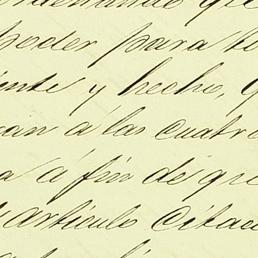 poder para to
ente y hecho,
can á las cuatro
a á fin de que
articulo citad